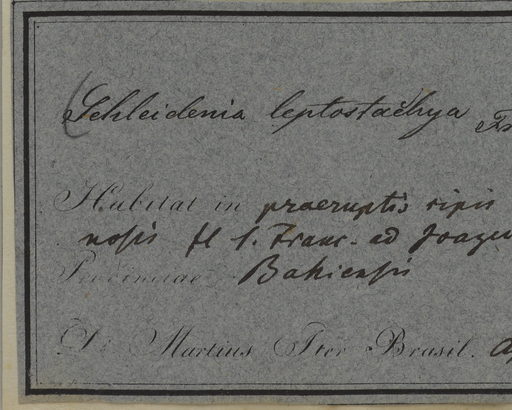 Schleidenia leptostachya Fr
Habitat in praeruptis ripis
nosis fl S. Franc. ad Joazei
Provinciae Bahiensis
D. Martius Iter Brasil. Ap